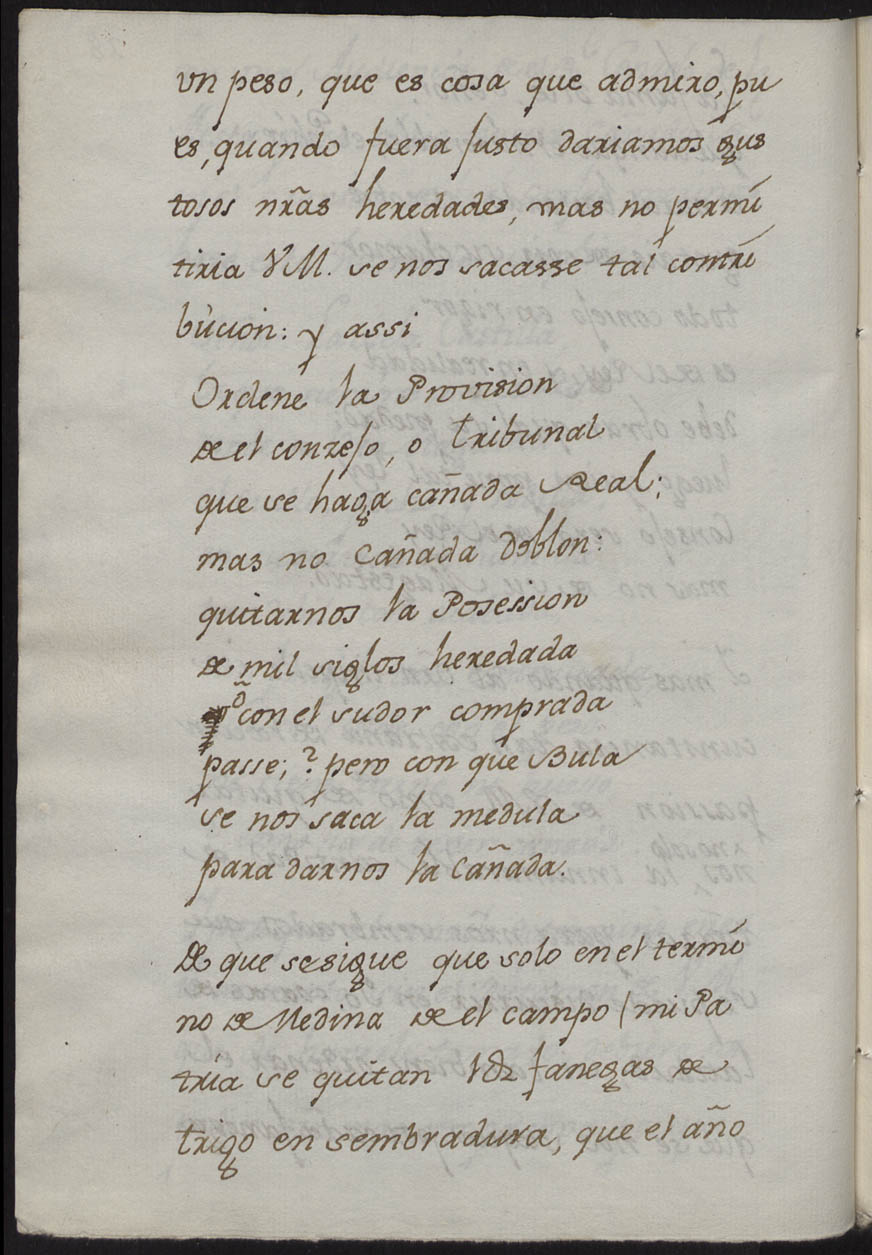 vn peso, que es cosa que admiro, pu
es, quando fuera justo dariamos gus
tosos nr̃as heredades, mas no permi
tiria VM. se nos sacasse tal contri
bucion: y assi
Ordene la Provision
de el conzejo, o tribunal
que se haga cañada Real;
mas no Cañada Doblon:
quitarnos la Posession
de mil siglos heredada
o con el sudor comprada
passe; ? pero con que Bula
se nos saca la medula
para darnos la Cañada.
De que se sigue que solo en el termi
no de Medina de el campo (mi Pa
tria se quitan fanegas de
trigo en sembradura, que el año